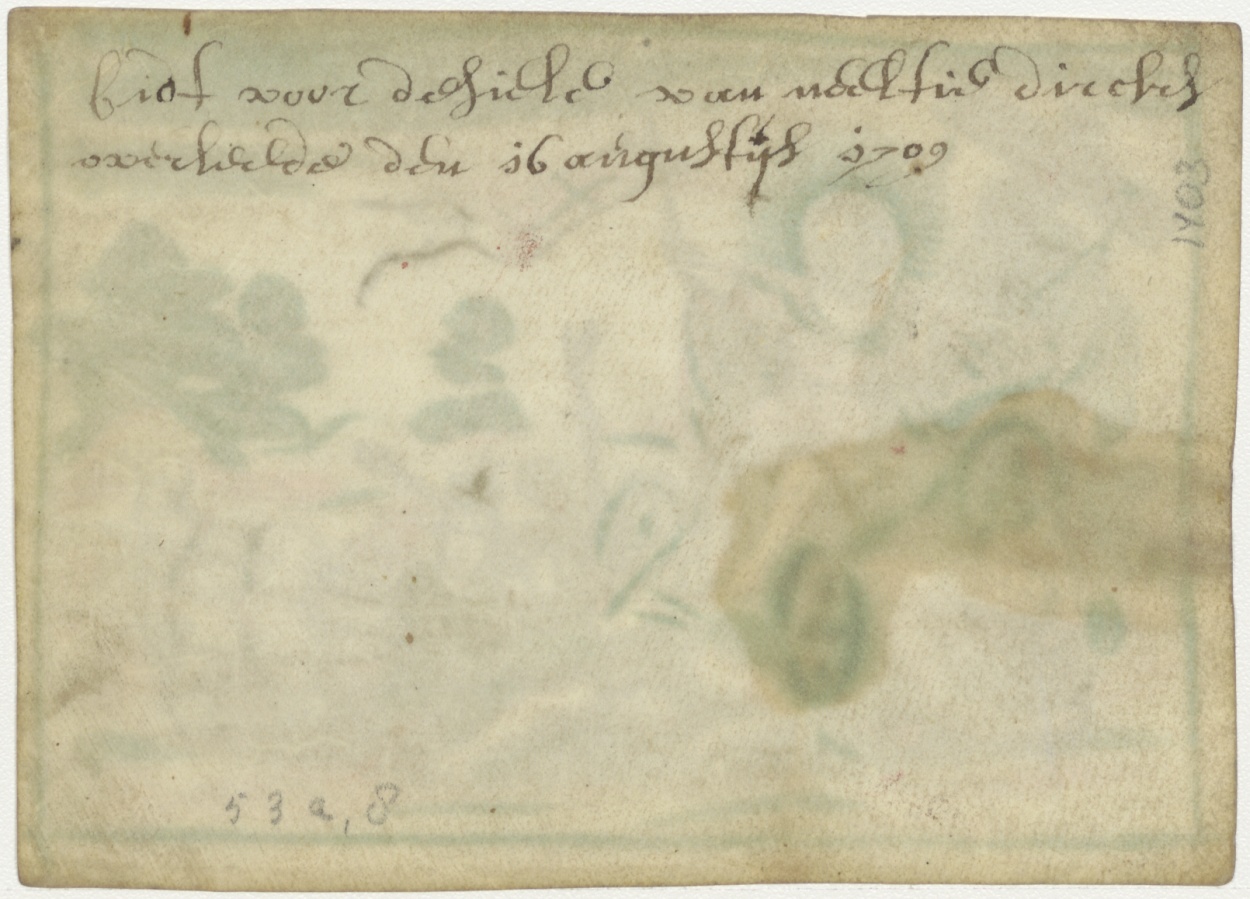 bidt voor de siele van neeltie dircks
overleede den 16 augustijs 1709
1403
53a,8